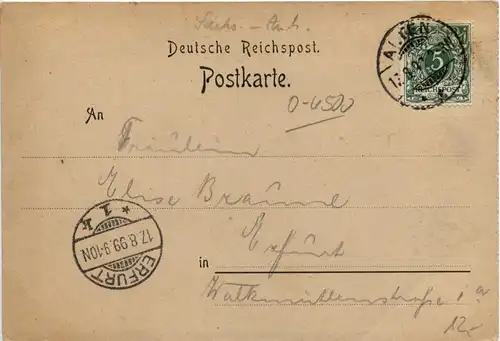 Sachs.-Anh.
Deutsche Reichspost.
Postkarte.
5
REICHSPOST
17.8.99
0-6500
An
Fräulein
Elise Bräunie
Erfurt
in
Walkmühlenstraße 1a
12.-
ERFURT
17.8.99.9-10N
* 1 k